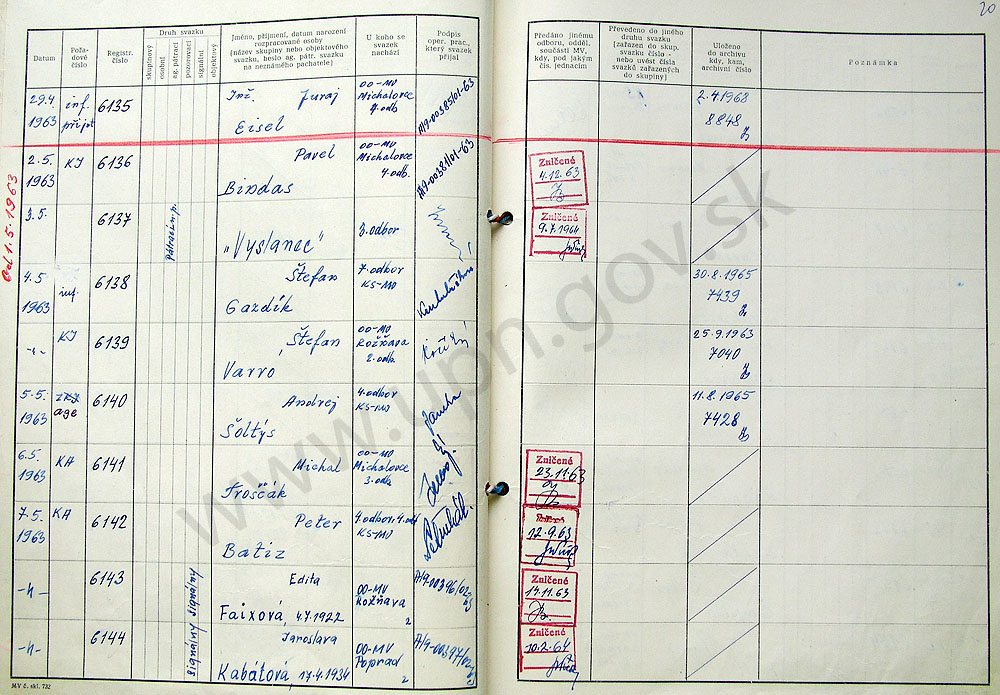 20
Datum
Pořa-
dové
číslo
Registr.
číslo
Druh svazku
skupinový
osobní
ag. pátrací
pozorovací
signální
objektový
Jméno, příjmení, datum narození
rozpracované osoby
(název skupiny nebo objektového
svazku, heslo ag. pátr. svazku
na neznámého pachatele)
U koho se
svazek
nachází
Podpis
oper. prac.,
který svazek
přijal
Předáno jinému
odboru, odděl.
součásti MV,
kdy, pod jakým
čís. jednacím
Převedeno do jiného
druhu svazku
(zařazen do skup.
svazku číslo -
nebo uvést čísla
svazků zařazených
do skupiny)
Uloženo
do archivu
kdy, kam,
archivní číslo
Poznámka
29.4.
1963
inf.
6135
Inž. Juraj
Eisel
OO-MV
Michalovce
4.odb
A/9-00385/01-63
2.4.1968
8848
Od 1.5.1963
2.5.
1963
KI
6136
Pavel
Bindas
OO-MV
Michalovce
4.odb.
A/9-00381/01-63
Zničené
4.12.63
3.5.
6137
Pátrací n.p.
„Vyslanec"
3.odbor
Zničené
9.7.1964
4.5
1963
inf.
6138
Štefan
Gazdík
7.odbor
KS-MV
30.8.1965
7439
-"-
KI
6139
Štefan
Varró
OO-MV
Rožňava
2.odb.
25.9.1963
7040
5.5.
1963
age
6140
Andrej
Šoltýs
4.odbor
KS-MV
11.8.1965
7428
6.5.
1963
KA
6141
Michal
Troščák
OO-MV
Michalovce
3.odb
Zničené
23.11.63
7.5.
1963
KA
6142
Peter
Batiz
4.odbor. 4.od
KS-MV
Zničené
12.9.63
-"-
6143
Signálny
Edita
Faixová, 4.7.1922
OO-MV
Rožňava
2
A/9-00396/02-63
Zničené
14.11.63
-"-
6144
Signálny
Jaroslava
Kabátová, 17.4.1934
OO-MV
Poprad
2
A/9-00397/02-63
Zničené
10.2.64
MV č. skl. 732
www.upn.gov.sk